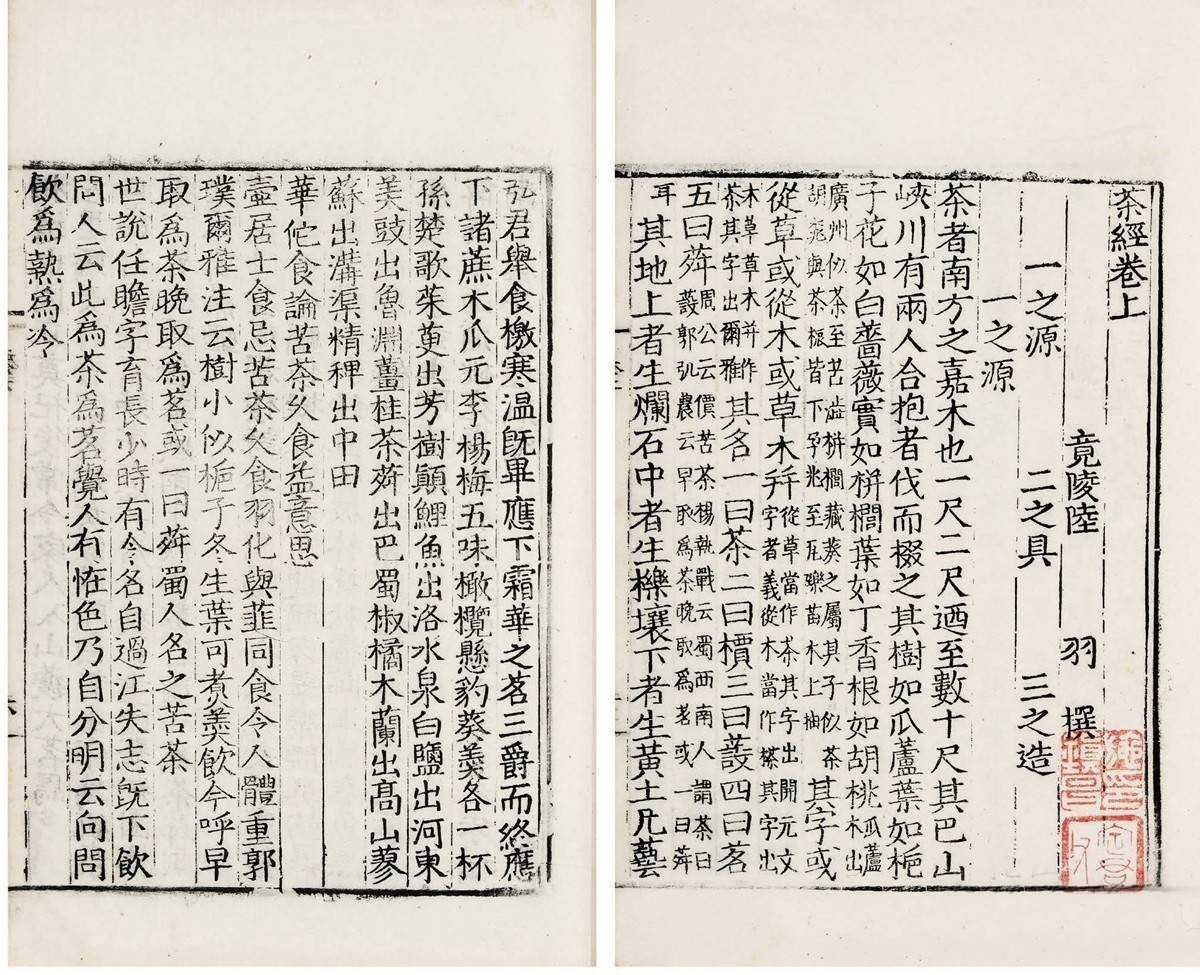 茶經卷上
竟陵陸 羽 撰
一之源 二之具 三之造
一之源
茶者南方之嘉木也一尺二尺廼至數十尺其巴山
峽川有兩人合抱者伐而掇之其樹如瓜蘆葉如梔
子花如白薔薇實如栟櫚葉如丁香根如胡桃瓜蘆木出
廣州似茶至苦澁栟櫚蒲葵之屬其子似茶
胡桃與茶根皆下孕兆至瓦礫苗木上抽其字或
從草或從木或草木并從草當作茶其字出開元文
字者義從木當作㮈其字出
本草草木并作
荼其字出爾雅其名一曰茶二曰檟三曰蔎四曰茗
五曰荈周公云檟苦荼楊執戟云蜀西南人謂茶曰
蔎郭弘農云早取為茶晚取為茗或一曰荈
耳其地上者生爛石中者生櫟壤下者生黃土凡藝
弘君舉食檄寒溫旣畢應下霜華之茗三爵而終應
下諸蔗木瓜元李楊梅五味橄欖懸豹葵羹各一杯
孫楚歌茱萸出芳樹顛鯉魚出洛水泉白鹽出河東
美豉出魯淵薑桂茶荈出巴蜀椒橘木蘭出高山蓼
蘇出溝渠精稗出中田
華佗食論苦荼久食益意思
壺居士食忌苦茶久食羽化與韮同食令人體重郭
璞爾雅注云樹小似梔子冬生葉可煑羹飲今呼早
取為茶晚取為茗或一曰荈蜀人名之苦荼
世說任瞻字育長少時有令名自過江失志旣下飲
問人云此為茶為茗覺人有怪色乃自分明云向問
飲為熱為冷